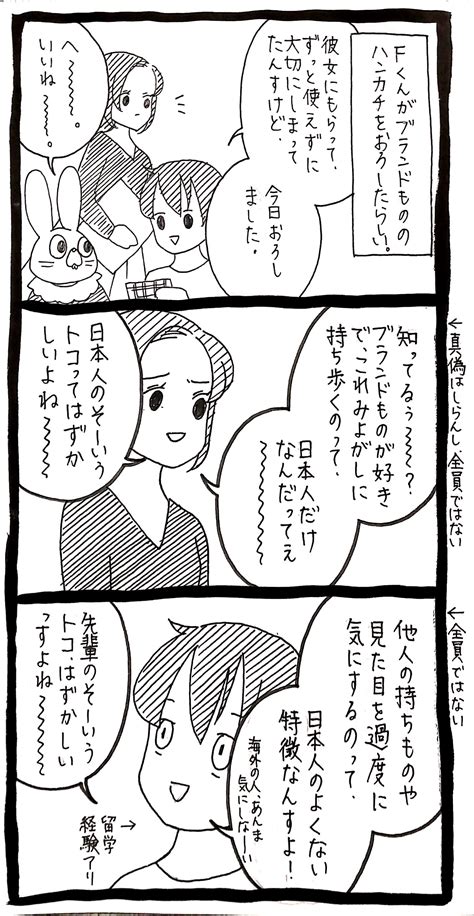 Fくんがブランドものの
ハンカチをおろしたらしい。
彼女にもらって、
ずっと使えずに
大切にしまって
たんすけど、
今日おろし
ました。
へ～～。
いいね～～～。
知ってるぅ～～～？
ブランドものが好き
で、これみよがしに
持ち歩くのって、
日本人だけ
なんだってえ
～～～～～
日本人のそーいう
トコってはずか
しいよね～～～
←真偽はしらんし全員ではない
他人の持ちものや
見た目を過度に
気にするのって、
日本人のよくない
特徴なんすよー！
海外の人、あんま
気にしなーい
先輩のそーいう
トコ、はずかしい
っすよね～～～～
→
留学
経験アリ
←全員ではない